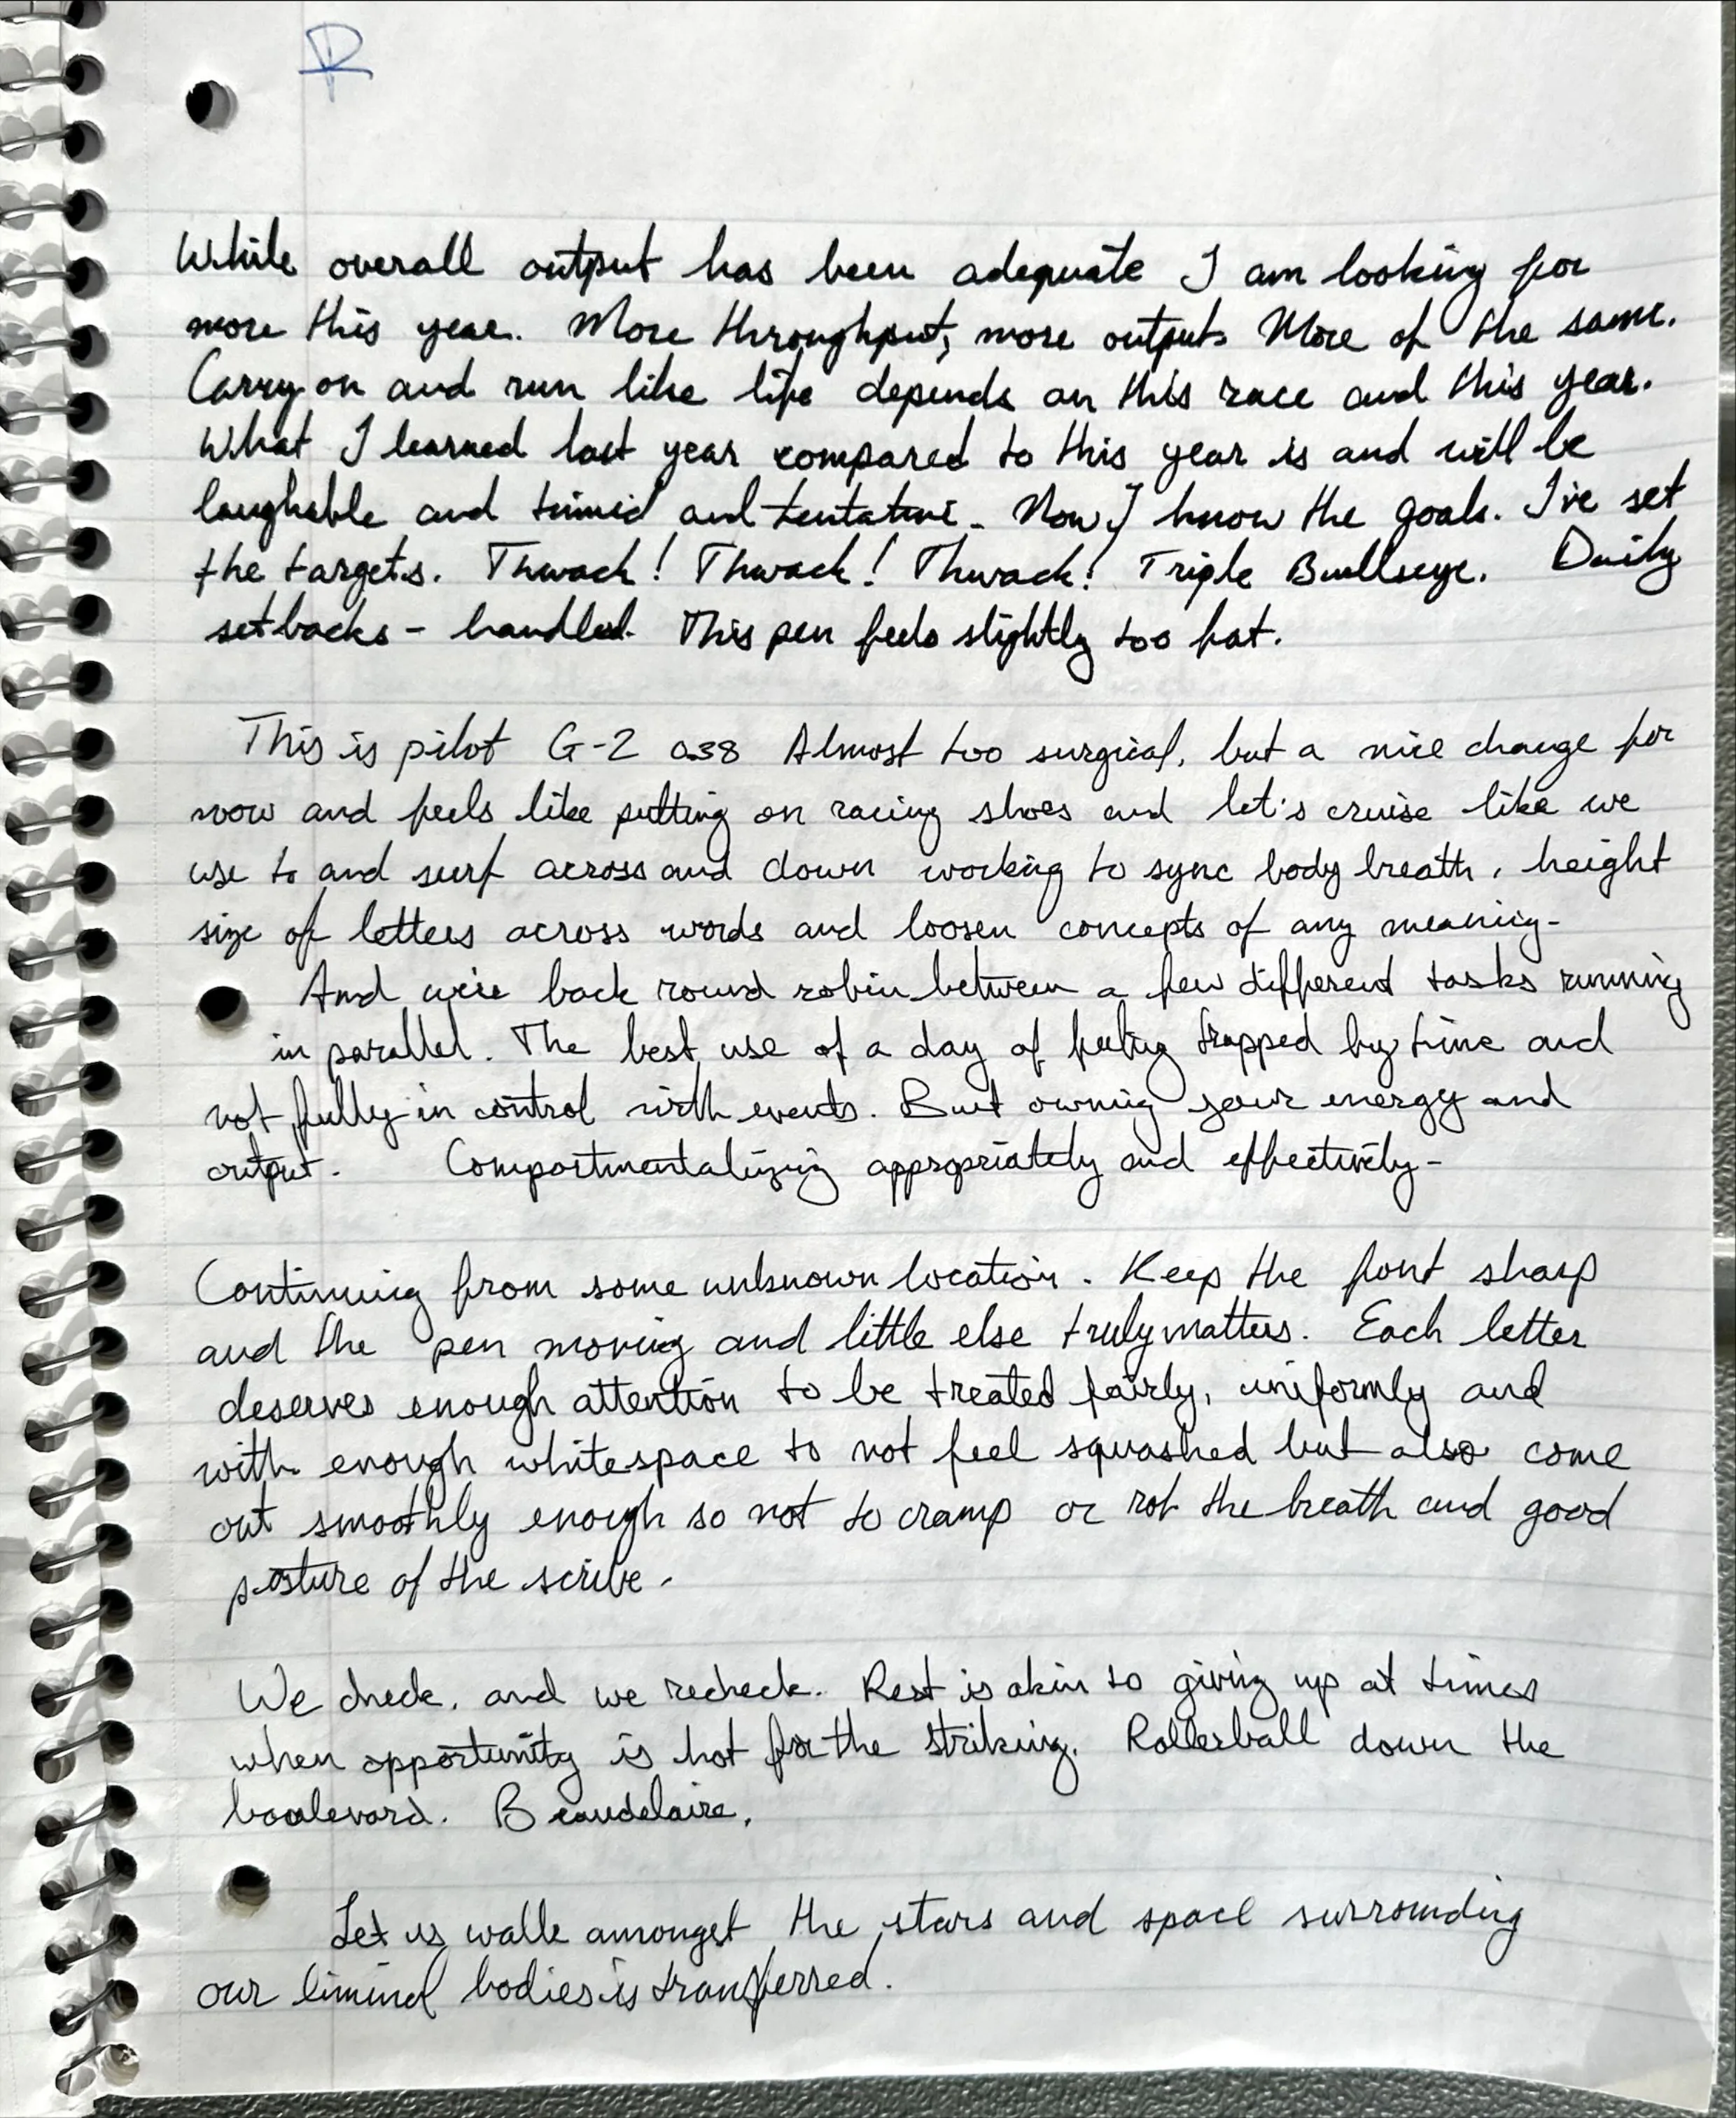 R
While overall output has been adequate I am looking for
more this year. More throughput, more output. More of the same.
Carry on and run like life depends on this race and this year.
What I learned last year compared to this year is and will be
laughable and timid and tentative. Now I know the goals. I've set
the targets. Thwack! Thwack! Thwack! Triple Bullseye. Daily
setbacks - handled. This pen feels slightly too fat.
This is pilot G-2 0.38 Almost too surgical, but a nice change for
now and feels like putting on racing shoes and let's cruise like we
use to and surf across and down working to sync body breath, height
size of letters across words and loosen concepts of any meaning-
And we're back round robin between a few different tasks running
in parallel. The best use of a day of feeling trapped by time and
not fully in control with events. But owning your energy and
output. Compartmentalizing appropriately and effectively-
Continuing from some unknown location. Keep the font sharp
and the pen moving and little else truly matters. Each letter
deserves enough attention to be treated fairly, uniformly and
with enough whitespace to not feel squashed but also come
out smoothly enough so not to cramp or rob the breath and good
posture of the scribe.
We check, and we recheck. Rest is akin to giving up at times
when opportunity is hot for the striking. Rollerball down the
boulevard. Beaudelaire.
Let us walk amongst the stars and space surrounding
our liminal bodies is transferred.